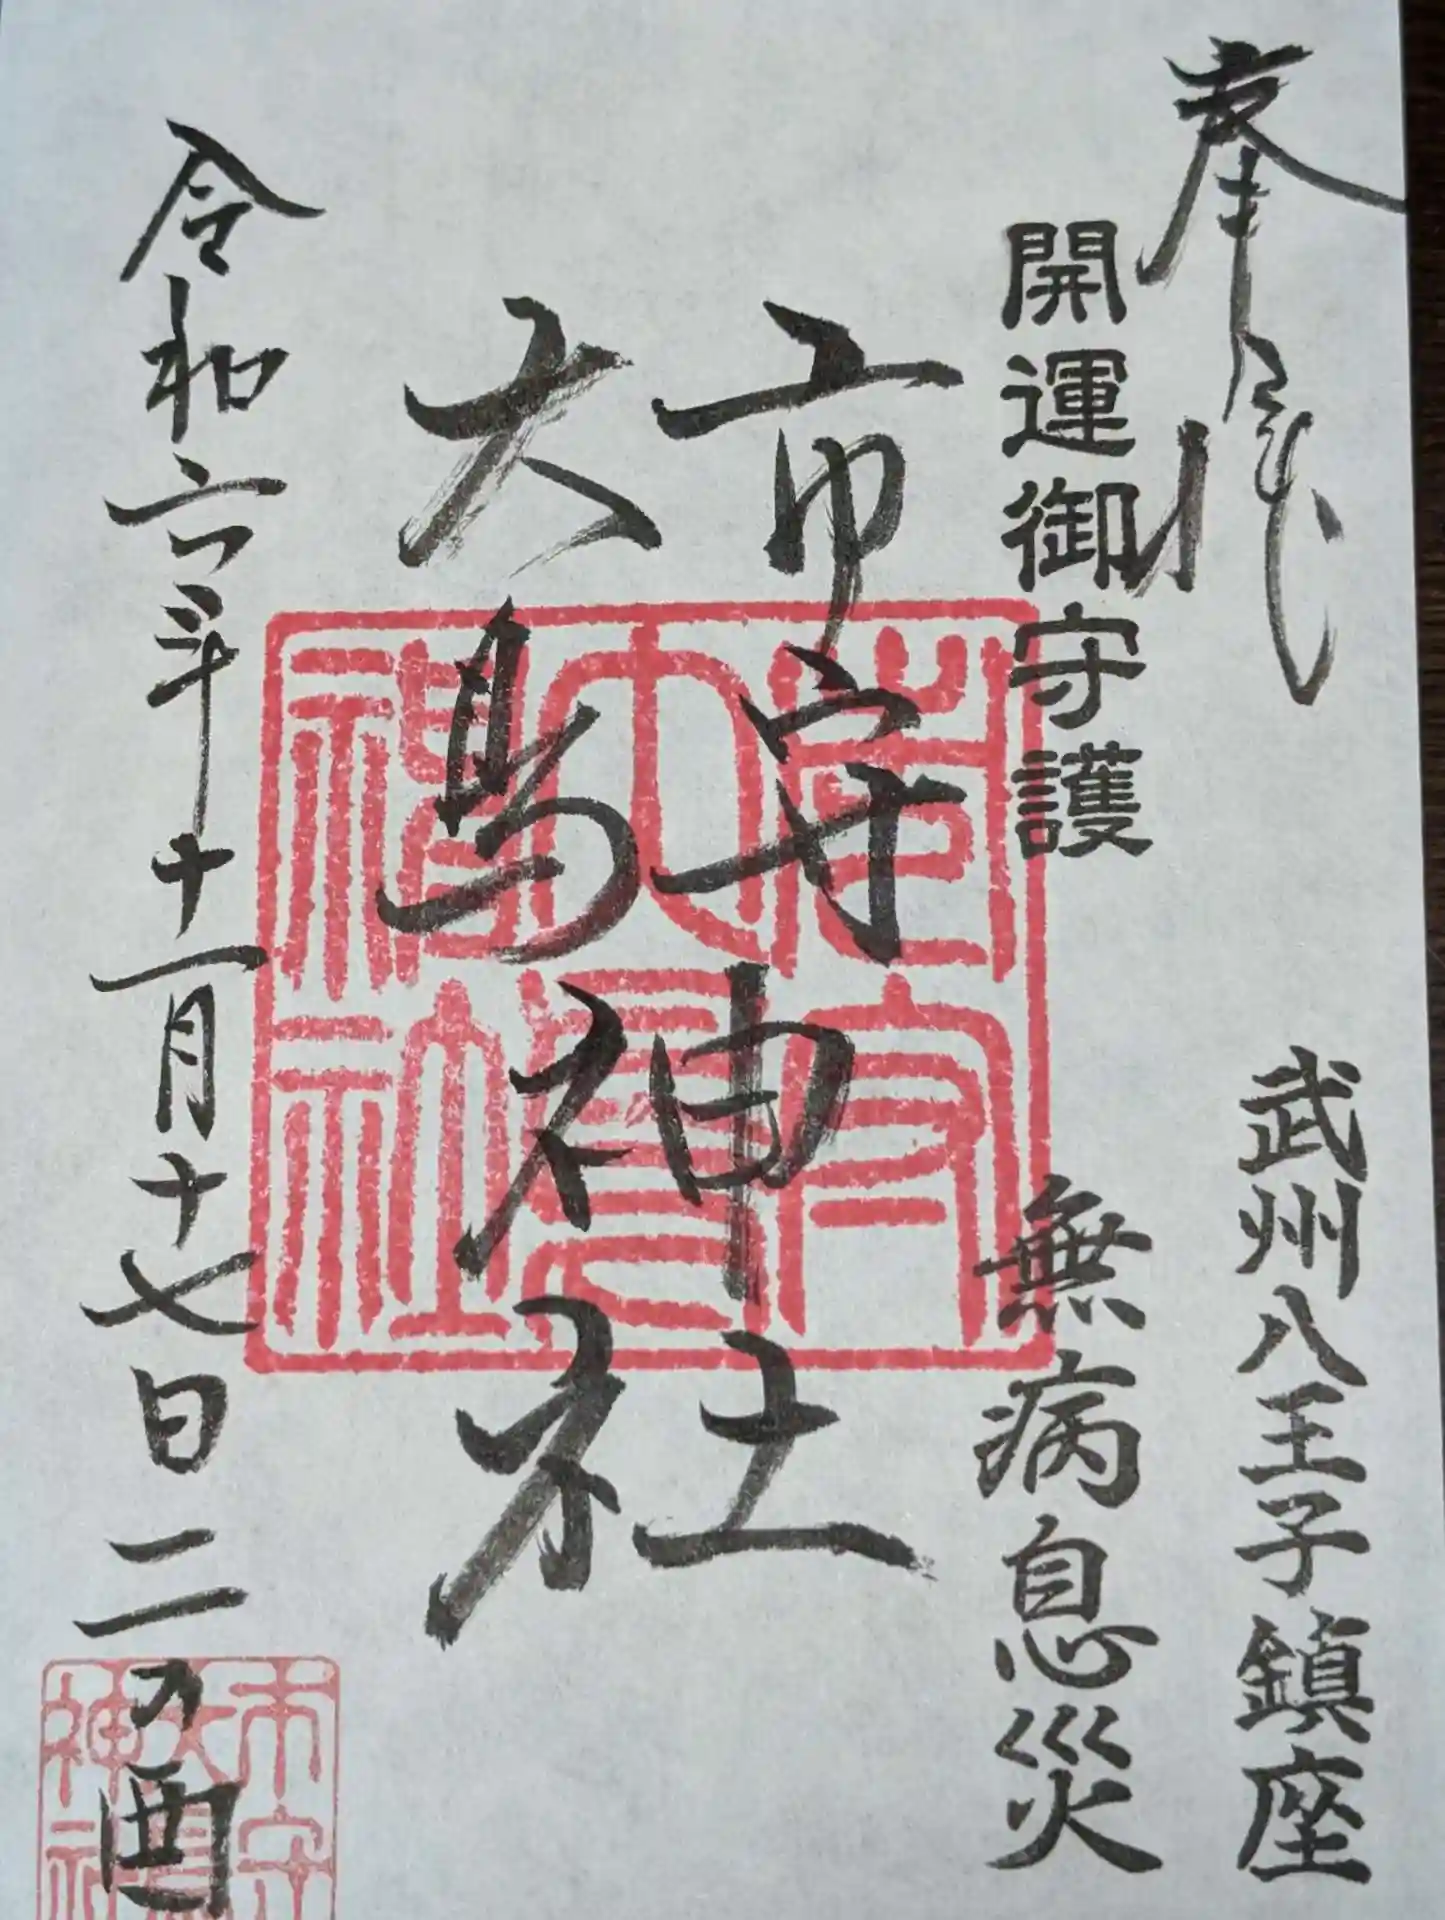 奉拝
武州八王子鎮座
開運御守護
無病息災
市守
大鳥
神社
令和六年十一月十七日二の酉
市守大鳥神社
市守大鳥神社